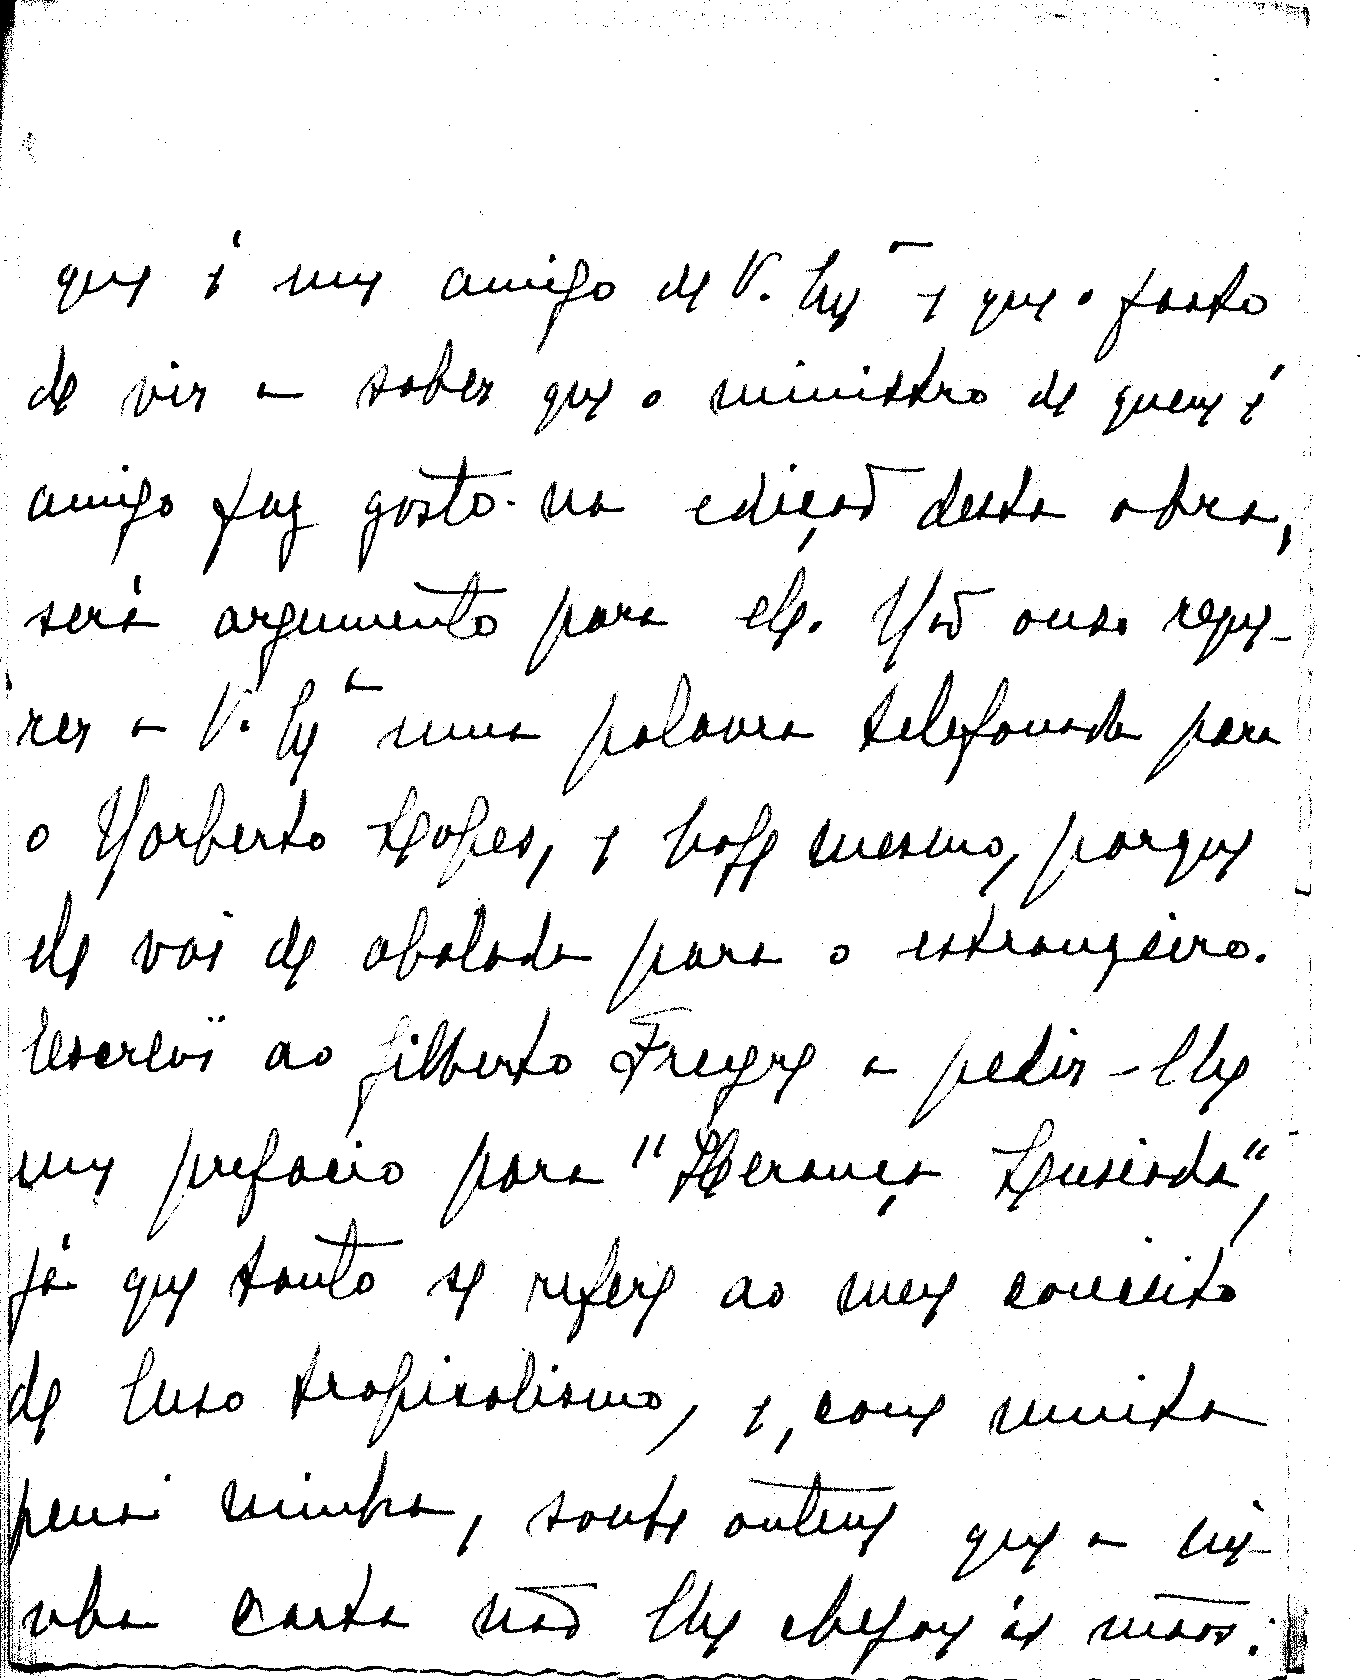 que é um amigo de V. Exª e que o facto
de vir a saber que o ministro de quem é
amigo faz gosto na edição desta obra,
será argumento para ele. Não ouso reque-
rer a V. Exª uma palavra telefonada para
o Norberto Lopes, e hoje mesmo, porque
ele vai de abalada para o estrangeiro.
Escrevi ao Gilberto Freyre a pedir-lhe
um prefacio para "Herança Lusiada",
já que tanto se refere ao meu conceito
de luso tropicalismo, e, com muita
pena minha, soube ontem que a mi-
nha carta não lhe chegou ás mãos.